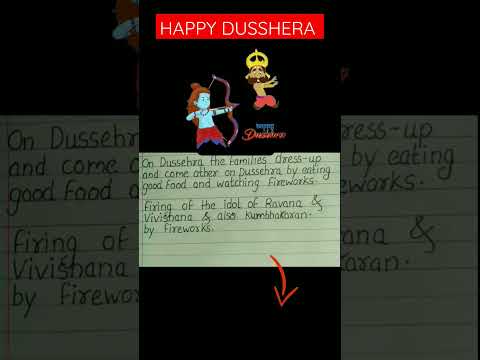 HAPPY DUSSHERA
happy
Dussehra
On Dussehra the families dress-up
and come other on Dussehra by eating
good food and watching fireworks.
Firing of the idol of Ravana &
Vivishana & also Kumbhakaran.
by fireworks.